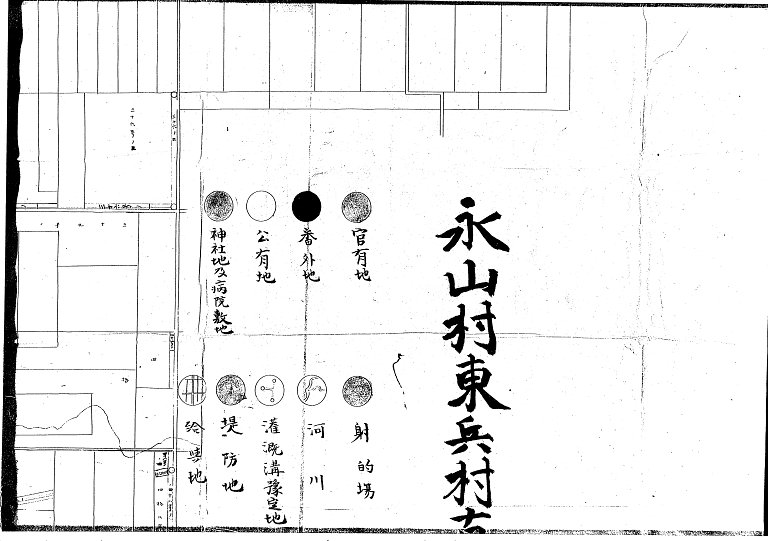 永山村東兵村
官有地
番外地
公有地
神社地及病院敷地
射的場
河川
灌漑溝豫定地
堤防地
給與地